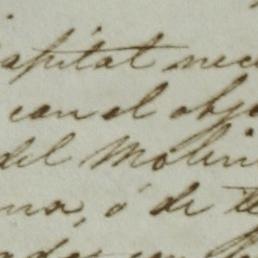 capital nece
con el obje
del Molin
na, ó de te